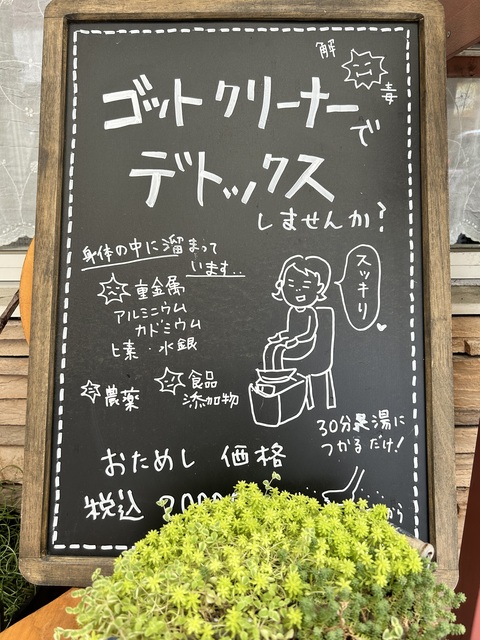 解
毒
ゴットクリーナーで
デトックス
しませんか?
身体の中に溜まって
います..
スッキリ
重金属
アルミニウム
カドミウム
ヒ素・水銀
農薬
食品
添加物
30分足湯に
つかるだけ!
おためし 価格
税込
から